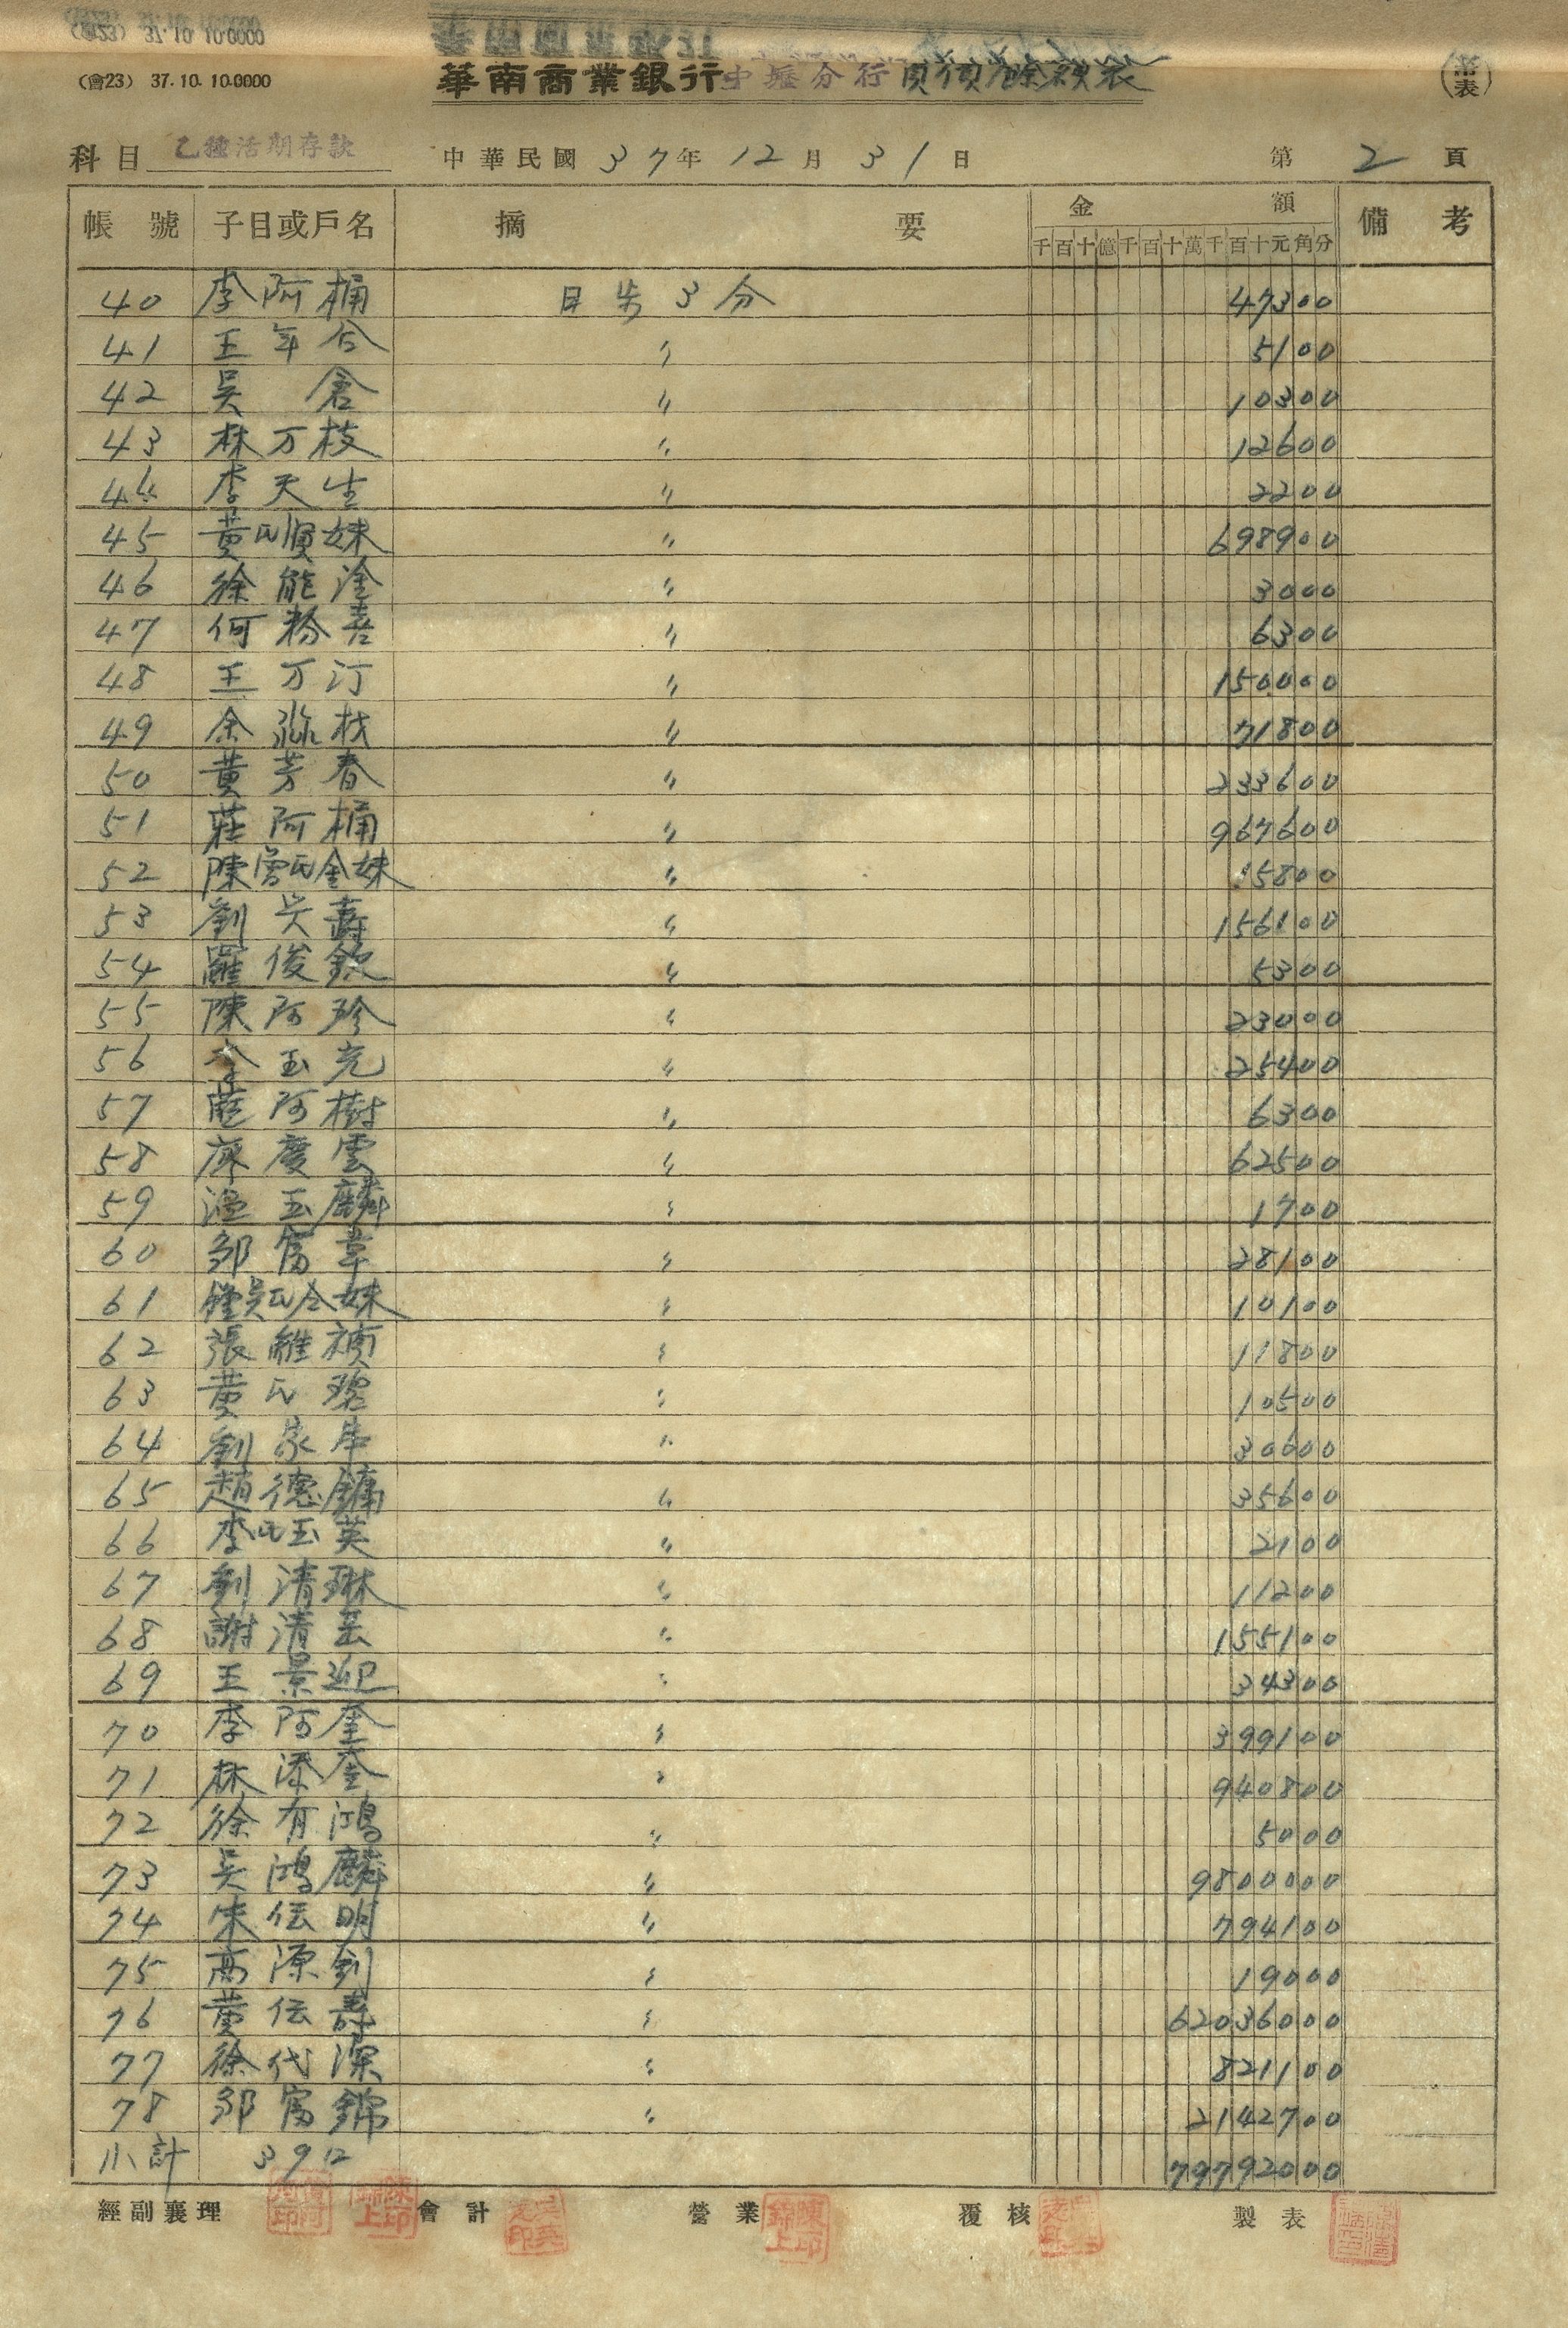 (會23) 37.10.10.0000
華南商業銀行中壢分行負債餘額表
科目 乙種活期存款 中華民國37年12月31日 第2頁
帳號 子目或戶名 摘要 金額 備考
千百十億千百十萬千百十元角分
40 李阿桶 日步3分 47300
41 王年合 〃 5100
42 吳倉 〃 10300
43 林万枝 〃 12600
44 李天生 〃 2200
45 黃氏順妹 〃 698900
46 徐能淦 〃 3000
47 何粉喜 〃 6300
48 王万汀 〃 150000
49 余添枝 〃 71800
50 黃芳春 〃 233600
51 莊阿桶 〃 967600
52 陳曾氏金妹 〃 15800
53 劉吳壽 〃 156100
54 羅俊欽 〃 5300
55 陳阿珍 〃 23000
56 李玉充 〃 25400
57 范阿樹 〃 6300
58 廖慶雲 〃 62500
59 溫玉麟 〃 1700
60 鄒富章 〃 28100
61 鍾吳氏令妹 〃 10100
62 張維禎 〃 11800
63 黃氏碧 〃 10500
64 劉家串 〃 30600
65 趙德鏞 〃 35600
66 李氏玉英 〃 2100
67 劉清琳 〃 11200
68 謝清岳 〃 155100
69 王景迎 〃 34300
70 李阿奎 〃 399100
71 林添奎 〃 940800
72 徐有鴻 〃 5000
73 吳鴻麟 〃 9800000
74 朱伝明 〃 794100
75 高源釗 〃 19000
76 黃伝壽 〃 62036000
77 徐代深 〃 821100
78 鄒富錦 〃 2142700
小計 39口 79792000
經副襄理 會計 營業 覆核 製表
陳印錦上